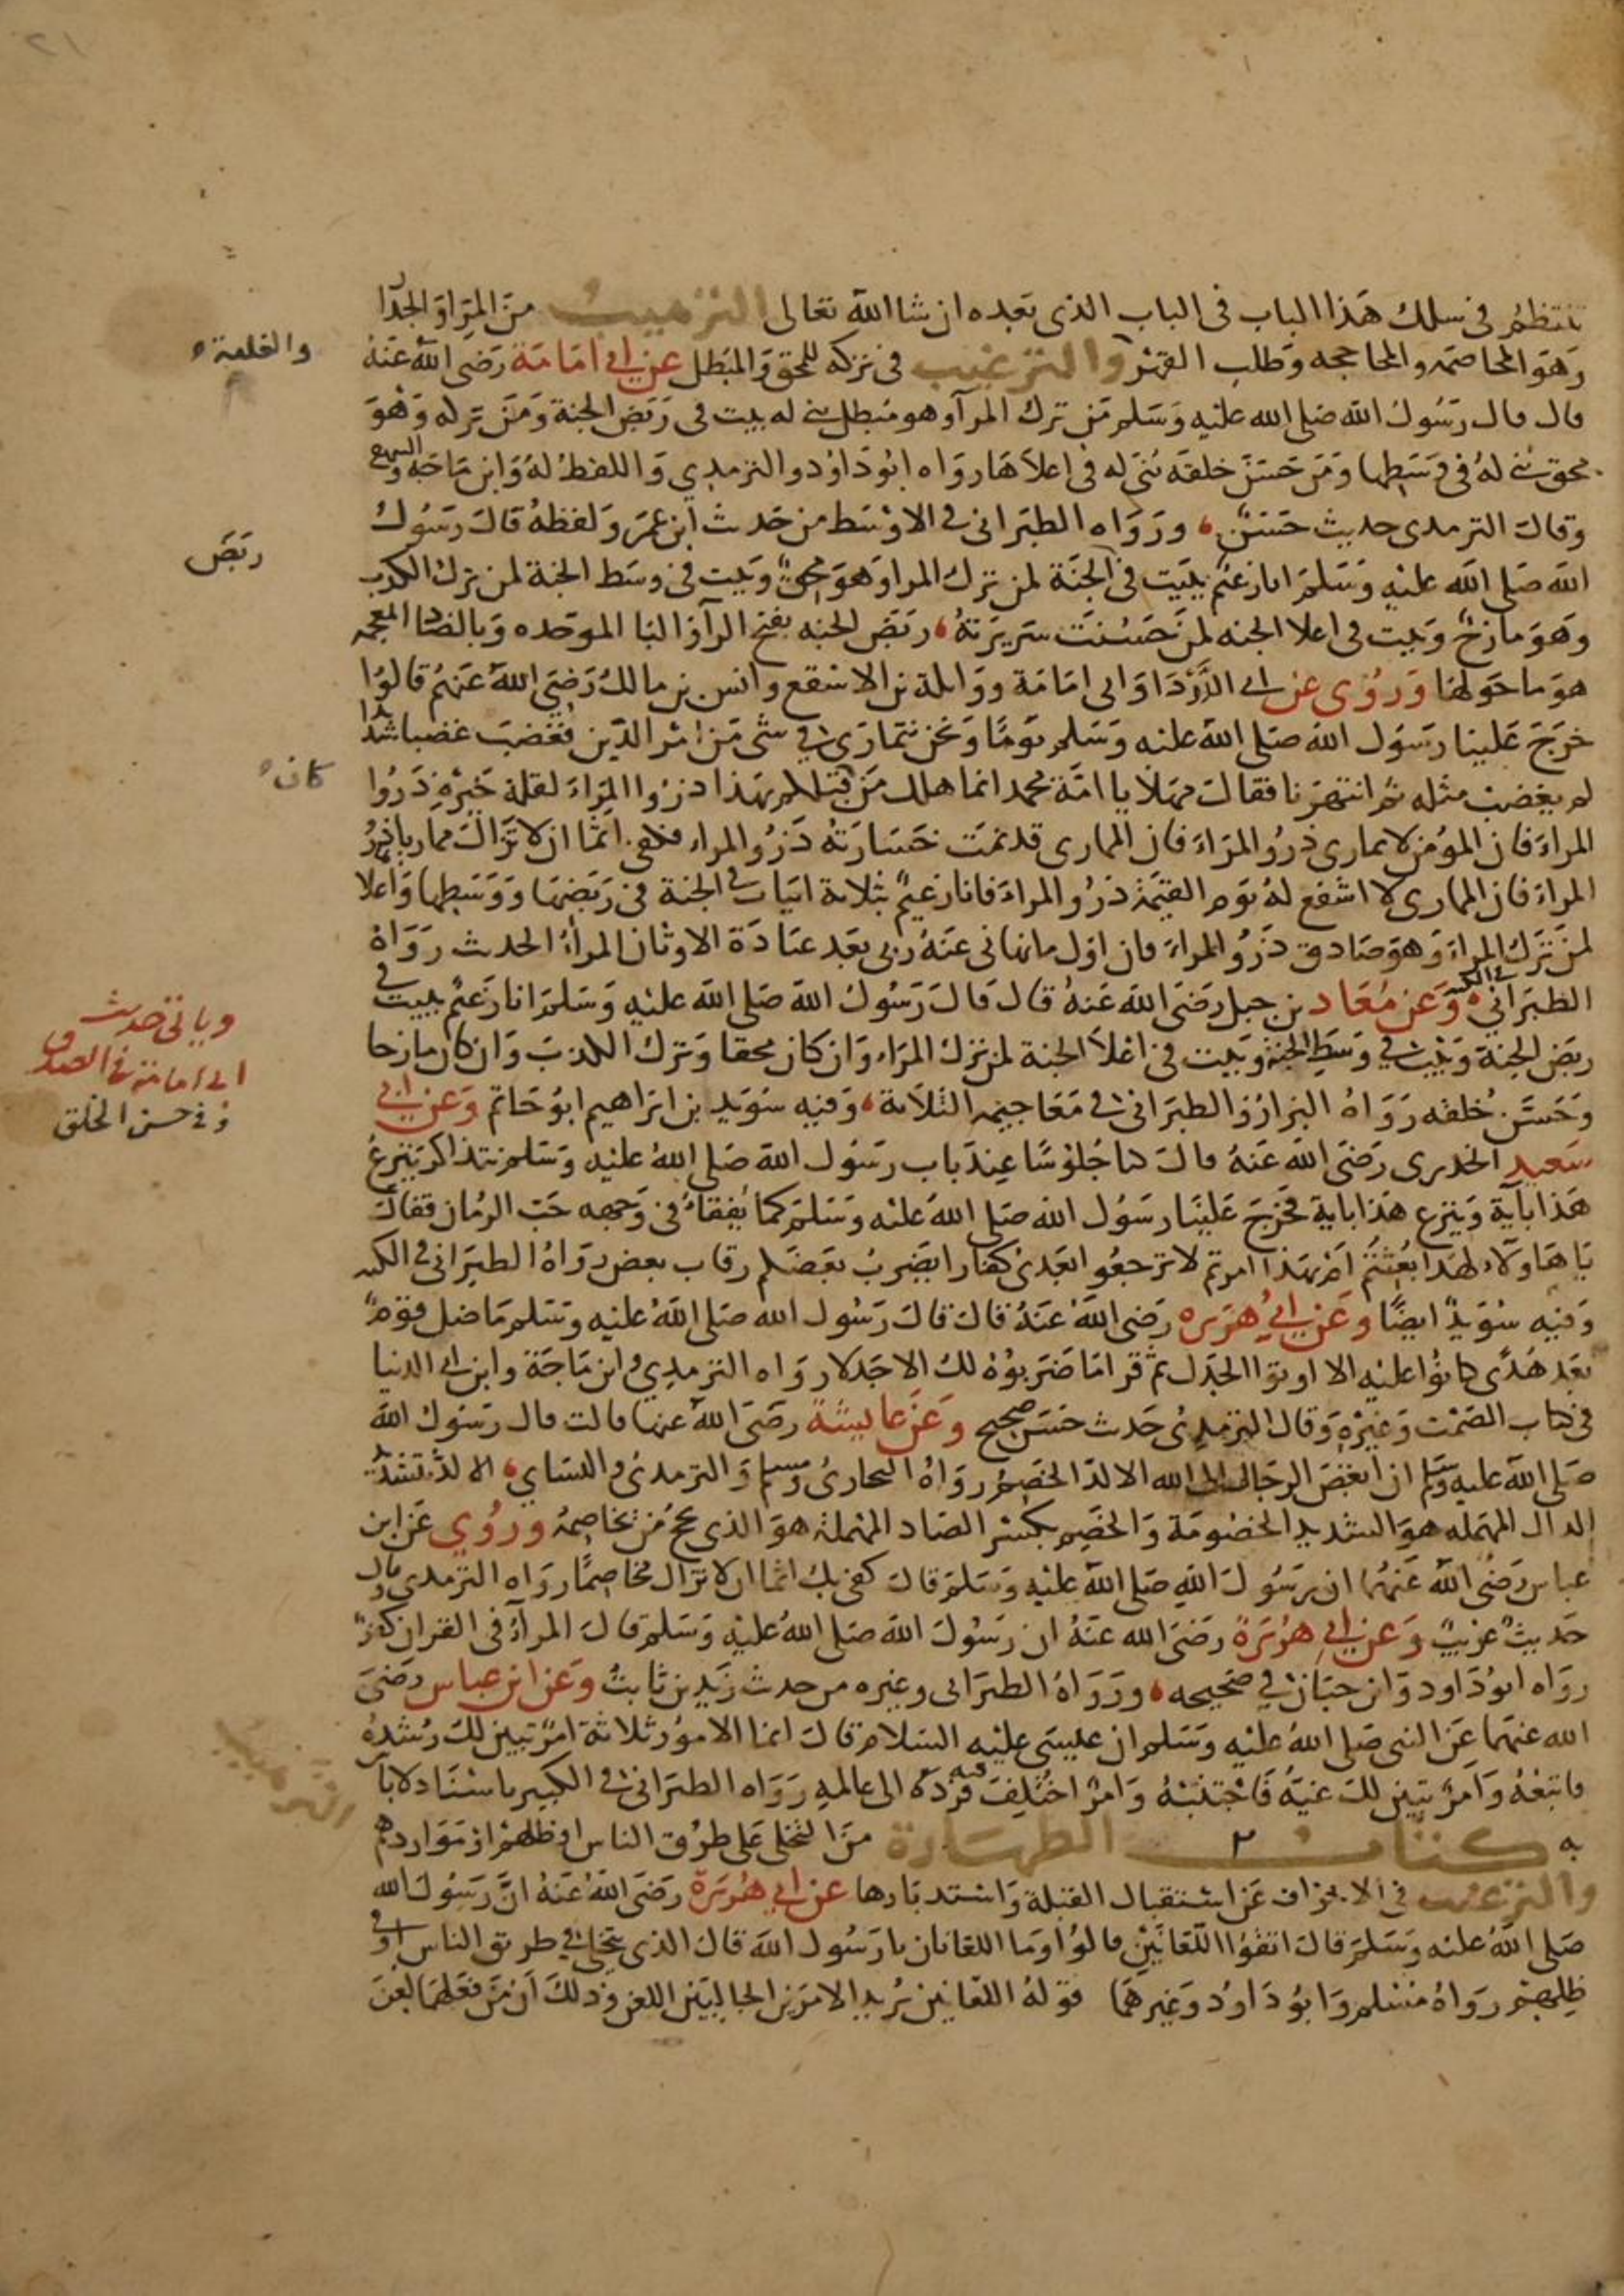 ٢١
تنتظم في سلك هذا الباب في الباب الذي بعده ان شا الله تعالى الترهيب من المِرا والجدا
وهو المخاصمه والمحاججه وطلب القهر والترغيب في تركه للمحق والمبطل عن ابي امامة رضي الله عنه
والغلبة
قال قال رسول الله صلى الله عليه وسلم من ترك المرآ وهو مبطل بني له بيت في ربض الجنة ومن تركه وهو
محق بني له في وسطها ومن حسن خلقه بُني له في اعلاها رواه ابو داود والترمذي واللفظ له وابن ماجه والبيهقي
وقال الترمذي حديث حسن ورواه الطبراني في الاوسط من حديث ابن عمر ولفظه قال رسول
ربض
الله صلى الله عليه وسلم انا زعيم ببيت في ربض الجنة لمن ترك المرا وهو محق وببيت في وسط الجنة لمن ترك الكذب
وهو مازح وببيت في اعلا الجنه لمن حسنت سريرته ربض الجنه بفتح الرآ والبا الموحده وبالضاد المعجمه
هو ما حولها وروي عن ابي الدردا وابي امامة وواثلة بن الاسقع وانس بن مالك رضي الله عنهم قالوا
خرج علينا رسول الله صلى الله عليه وسلم يومًا ونحن نتمارى في شي من امر الدين فغضب غضبا شديدا
لم يغضب مثله ثم انتهرنا فقال مهلا يا امة محمد انما هلك من قبلكم بهذا ذروا المراء لقلة خيره ذروا
كان
المراء فان المؤمن لا يماري ذرو المراء فان المماري قد تمت خسارته ذرو المراء فكفى اثما ان لا تزال مماريا ذرو
المراء فان المماري لا اشفع له يوم القيمة ذرو المراء فانا زعيم بثلاثة ابيات في الجنة في ربضها ووسطها واعلا
لمن ترك المراء وهو صادق ذرو المراء فان اول ما نهاني عنه ربي بعد عبادة الاوثان المراء الحديث رواه
الطبراني في الكبير وعن معاذ بن جبل رضي الله عنه قال قال رسول الله صلى الله عليه وسلم انا زعيم ببيت في
ربض الجنة وببيت في وسط الجنة وببيت في اعلا الجنة لمن ترك المراء وان كان محقا وترك الكذب وان كان مازحا
وحسن خلقه رواه البزار والطبراني في معاجيمه الثلاثة وفيه سويد بن ابراهيم ابو حاتم وعن ابي
وياتي حديث
ابي امامة في الصدق
و في حسن الخلق
سعيد الخدري رضي الله عنه قال كنا جلوسًا عند باب رسول الله صلى الله عليه وسلم نتذاكر ينزع
هذا بآية وينزع هذا باية فخرج علينا رسول الله صلى الله عليه وسلم كما يُفقأ في وجهه حَب الرمان فقال
يا هاولاء لهذا بعثتم ام بهذا امرتم لا ترجعوا بعدي كفارا يضرب بعضكم رقاب بعض رواه الطبراني في الكبير
وفيه سويد ايضًا وعن ابي هريره رضي الله عنه قال قال رسول الله صلى الله عليه وسلم ما ضل قوم
بعد هُدًى كانوا عليه الا اوتوا الجدل ثم قرا ما ضربوه لك الا جدلا رواه الترمذي وابن ماجة وابن ابي الدنيا
في كتاب الصمت وغيره وقال الترمذي حديث حسن صحيح وعن عايشة رضي الله عنها قالت قال رسول الله
صلى الله عليه وسلم ان ابغض الرجال الى الله الالد الخصم رواه البخاري ومسلم والترمذي والنساي الالد بتشديد
الدال المهمله هو الشديد الخصومة والخَصِم بكسر الصاد المهملة هو الذي يحج من يخاصمه وروي عن ابن
عباس رضي الله عنهما ان رسول الله صلى الله عليه وسلم قال كفى بك اثما ان لا تزال مخاصمًا رواه الترمذي وقال
حديث غريب وعن ابي هريرة رضي الله عنه ان رسول الله صلى الله عليه وسلم قال المرآء في القران كفر
رواه ابو داود وابن حبان في صحيحه ورواه الطبراني وغيره من حديث زيد بن ثابت وعن ابن عباس رضي
الله عنهما عن النبي صلى الله عليه وسلم ان عيسى عليه السلام قال انما الامور ثلاثة امر تبين لك رشده
فاتبعه وامر تبين لك غيه فاجتنبه وامر اختلف فيه فرُدّه الى عالمه رواه الطبراني في الكبير باسناد لا باس
الترهيب
به كتاب الطهارة من التخلي على طرق الناس او ظلهم او مواردهم
والترغيب في الانحراف عن استقبال القبلة واستدبارها عن ابي هريرة رضي الله عنه ان رسول الله
صلى الله عليه وسلم قال اتقوا اللعانين قالوا وما اللعانان يا رسول الله قال الذي يتخلى في طريق الناس او في
ظلهم رواه مسلم وابو داود وغيرهما قوله اللعانين يريد الامرين الجالبين اللعن وذلك ان من فعلهما لعن